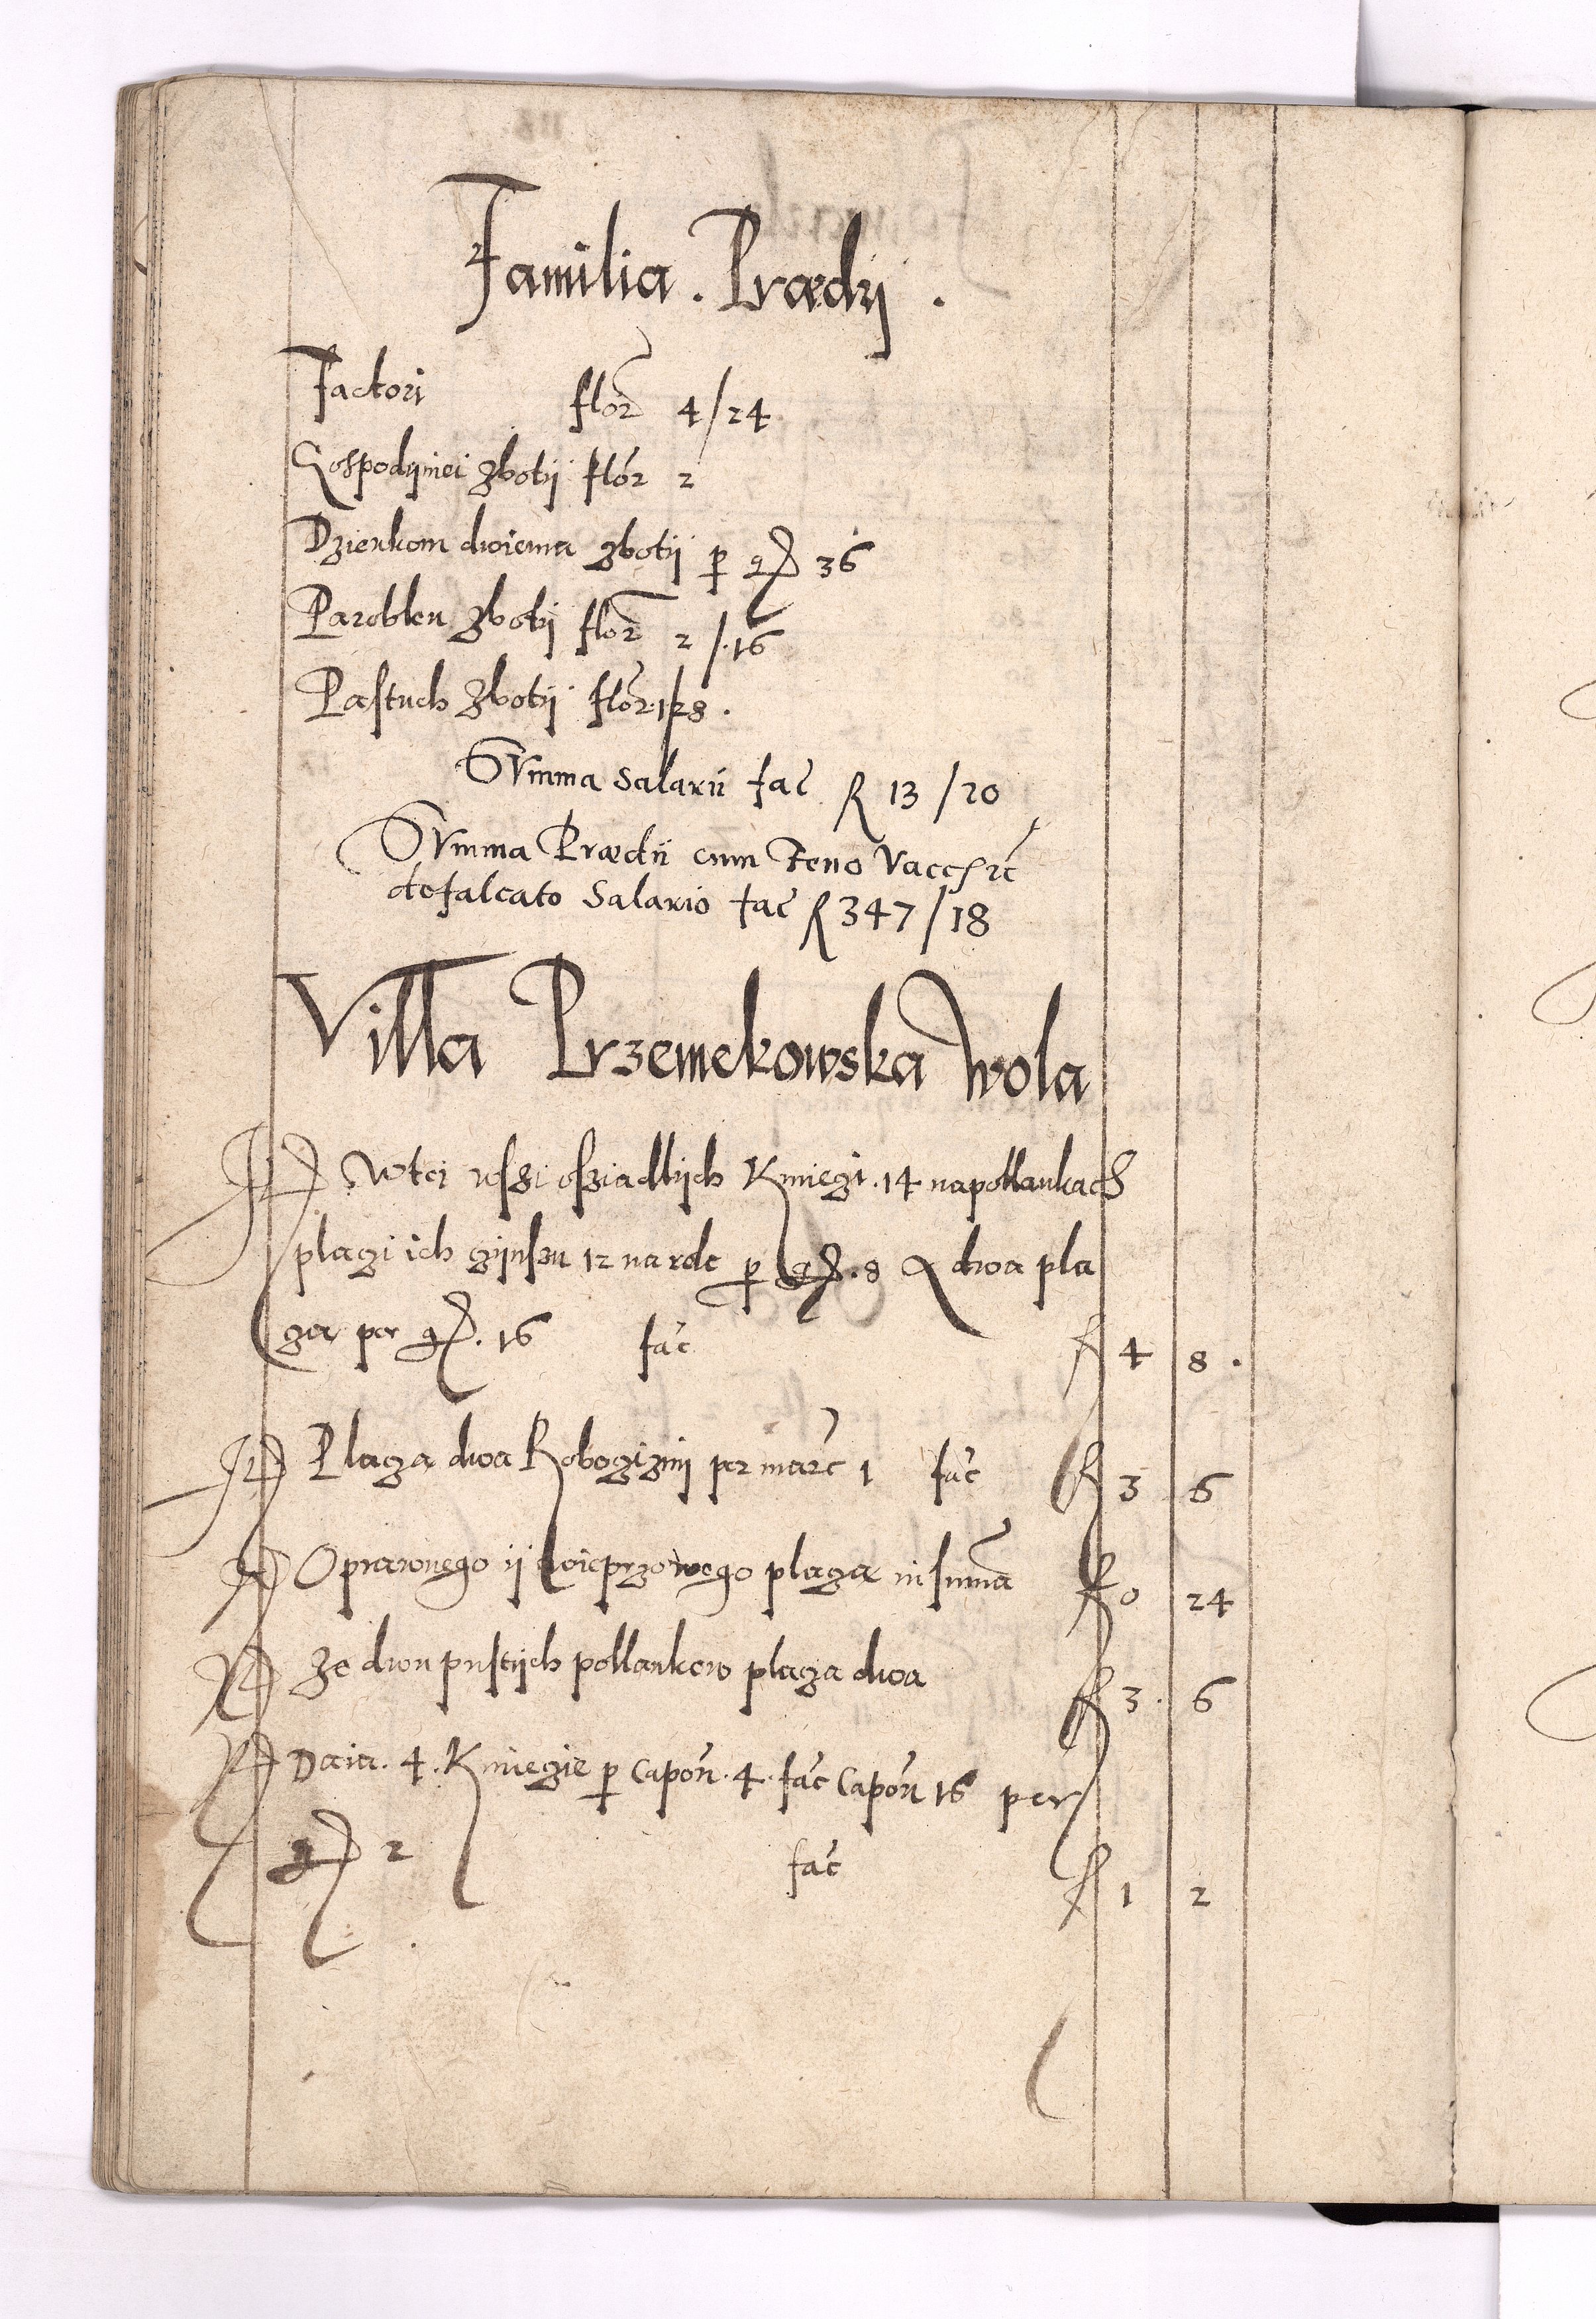 Familia . Prædij .
Factori flor 4/24
Gospodijniei zbotij flor 2
Dziewkom dwiema zbotij p gr 36
Parobku zbotij flor 2/.16
Pastuch zbotij flor 1/28 .
Summa Salarii fac R 13/20
Summa Prædii cum Feno Vacc
defalcato Salario fac R 347/18
Villa Przemekowska Wola
It Wtei wsszi osziadlijch Kmieczi . 14 napollankach
placzi ich czijnszu 12 na rok p gr . 8 A dwa pla
cza per gr . 16 fac R 4 8 .
It Placza dwa Robocizni per marc 1 fac R 3 6
It Oprawnego ij wieprzowego placza in summa R 0 24
It Ze dwu pustijch pollankow placza dwa R 3 . 6
It Daia . 4 . Kmiecie p capon . 4 . fac Capon 16 per
gr 2 fac R 1 2